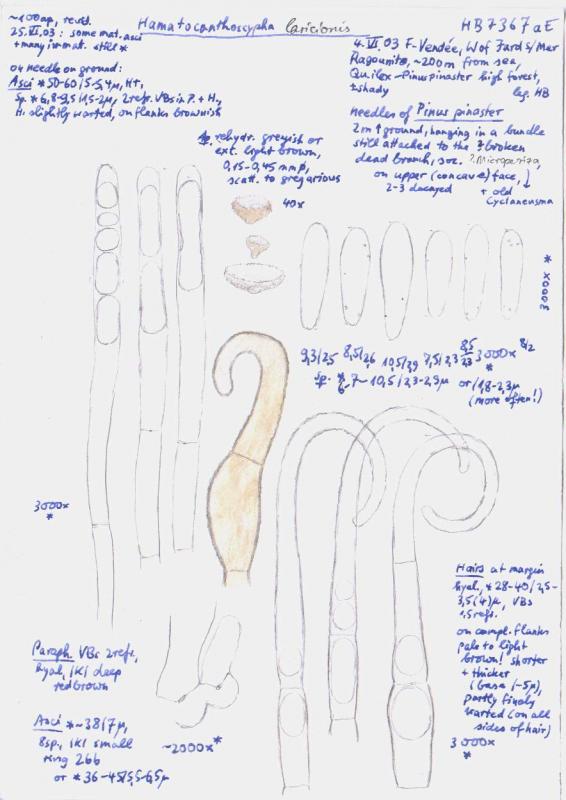 Hamatocanthoscypha laricionis
HB 7367aE
~100 ap., revid.
25.VI.03: some mat. asci
+ many immat. still *
on needle on ground:
Asci *50-60/5-5,4µ, H+,
Sp. *6,8-9,5/1,5-2µ, 2 refr. VBs in P. + H,
H. slightly warted, on flanks brownish
4.VI.03 F-Vendée, W of Jard s/Mer
Ragounite, ~200m from sea,
Qu. ilex-Pinus pinaster high forest,
± shady
leg. HB
needles of Pinus pinaster
2m ↑ ground, hanging in a bundle
still attached to the ± broken
dead branch, soc. ? Micropeziza,
on upper (concave) face, ↓
2-3 decayed + old
Cyclaneusma
Ap rehydr. greyish or
ext. light brown,
0,15-0,45 mm ø,
scatt. to gregarious
40x
3000x *
9,3/2,5 8,5/2,6 10,5/2,9 7,5/2,3 8,5/2,3 3000x 8/2
Sp. * 6-7-10,5/2,3-2,9µ or /1,8-2,3µ
(more often!)
3000x
*
Hairs at margin
hyal., *28-40/2,5-
3,5(4)µ, VBs
1,5 refr.
on compl. flanks
pale to light
brown! shorter
+ thicker
(base /-5µ),
partly finely
warted (on all
sides of hair)
3000x
*
Paraph. VBs 2 refr.,
hyal, IKI deep
redbrown
Asci *~38/7µ,
8sp., IKI small
ring 2bb
or *36-45/5,5-6,5µ
~2000x *